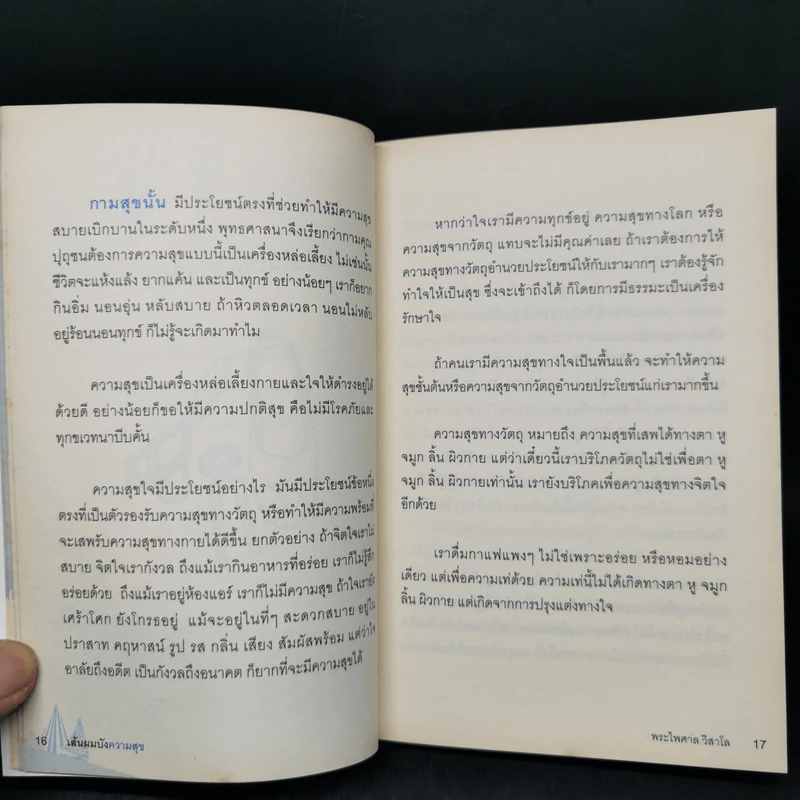 กามสุขนั้น มีประโยชน์ตรงที่ช่วยทำให้มีความสุข
สบายเบิกบานในระดับหนึ่ง พุทธศาสนาจึงเรียกว่ากามคุณ
ปุถุชนต้องการความสุขแบบนี้เป็นเครื่องหล่อเลี้ยง ไม่เช่นนั้น
ชีวิตจะแห้งแล้ง ยากแค้น และเป็นทุกข์ อย่างน้อยๆ เราก็อยาก
กินอิ่ม นอนอุ่น หลับสบาย ถ้าหิวตลอดเวลา นอนไม่หลับ
อยู่ร้อนนอนทุกข์ ก็ไม่รู้จะเกิดมาทำไม
ความสุขเป็นเครื่องหล่อเลี้ยงกายและใจให้ดำรงอยู่ได้
ด้วยดี อย่างน้อยก็ขอให้มีความปกติสุข คือไม่มีโรคภัยและ
ทุกขเวทนาบีบคั้น
ความสุขใจมีประโยชน์อย่างไร มันมีประโยชน์ข้อหนึ่ง
ตรงที่เป็นตัวรองรับความสุขทางวัตถุ หรือทำให้มีความพร้อมที่
จะเสพรับความสุขทางกายได้ดีขึ้น ยกตัวอย่าง ถ้าจิตใจเราไม่
สบาย จิตใจเรากังวล ถึงแม้เรากินอาหารที่อร่อย เราก็ไม่รู้สึก
อร่อยด้วย ถึงแม้เราอยู่ห้องแอร์ เราก็ไม่มีความสุข ถ้าใจเรายัง
เศร้าโศก ยังโกรธอยู่ แม้จะอยู่ในที่ๆ สะดวกสบาย อยู่ใน
ปราสาท คฤหาสน์ รูป รส กลิ่น เสียง สัมผัสพร้อม แต่ว่าใจ
อาลัยถึงอดีต เป็นกังวลถึงอนาคต ก็ยากที่จะมีความสุขได้
16 เส้นผมบังความสุข
หากว่าใจเรามีความทุกข์อยู่ ความสุขทางโลก หรือ
ความสุขจากวัตถุ แทบจะไม่มีคุณค่าเลย ถ้าเราต้องการให้
ความสุขทางวัตถุอำนวยประโยชน์ให้กับเรามากๆ เราต้องรู้จัก
ทำใจให้เป็นสุข ซึ่งจะเข้าถึงได้ ก็โดยการมีธรรมะเป็นเครื่อง
รักษาใจ
ถ้าคนเรามีความสุขทางใจเป็นพื้นแล้ว จะทำให้ความ
สุขขั้นต้นหรือความสุขจากวัตถุอำนวยประโยชน์แก่เรามากขึ้น
ความสุขทางวัตถุ หมายถึง ความสุขที่เสพได้ทางตา หู
จมูก ลิ้น ผิวกาย แต่ว่าเดี๋ยวนี้เราบริโภควัตถุไม่ใช่เพื่อตา หู
จมูก ลิ้น ผิวกายเท่านั้น เรายังบริโภคเพื่อความสุขทางจิตใจ
อีกด้วย
เราดื่มกาแฟแพงๆ ไม่ใช่เพราะอร่อย หรือหอมอย่าง
เดียว แต่เพื่อความเท่ด้วย ความเท่นี้ไม่ได้เกิดทางตา หู จมูก
ลิ้น ผิวกาย แต่เกิดจากการปรุงแต่งทางใจ
พระไพศาล วิสาโล 17